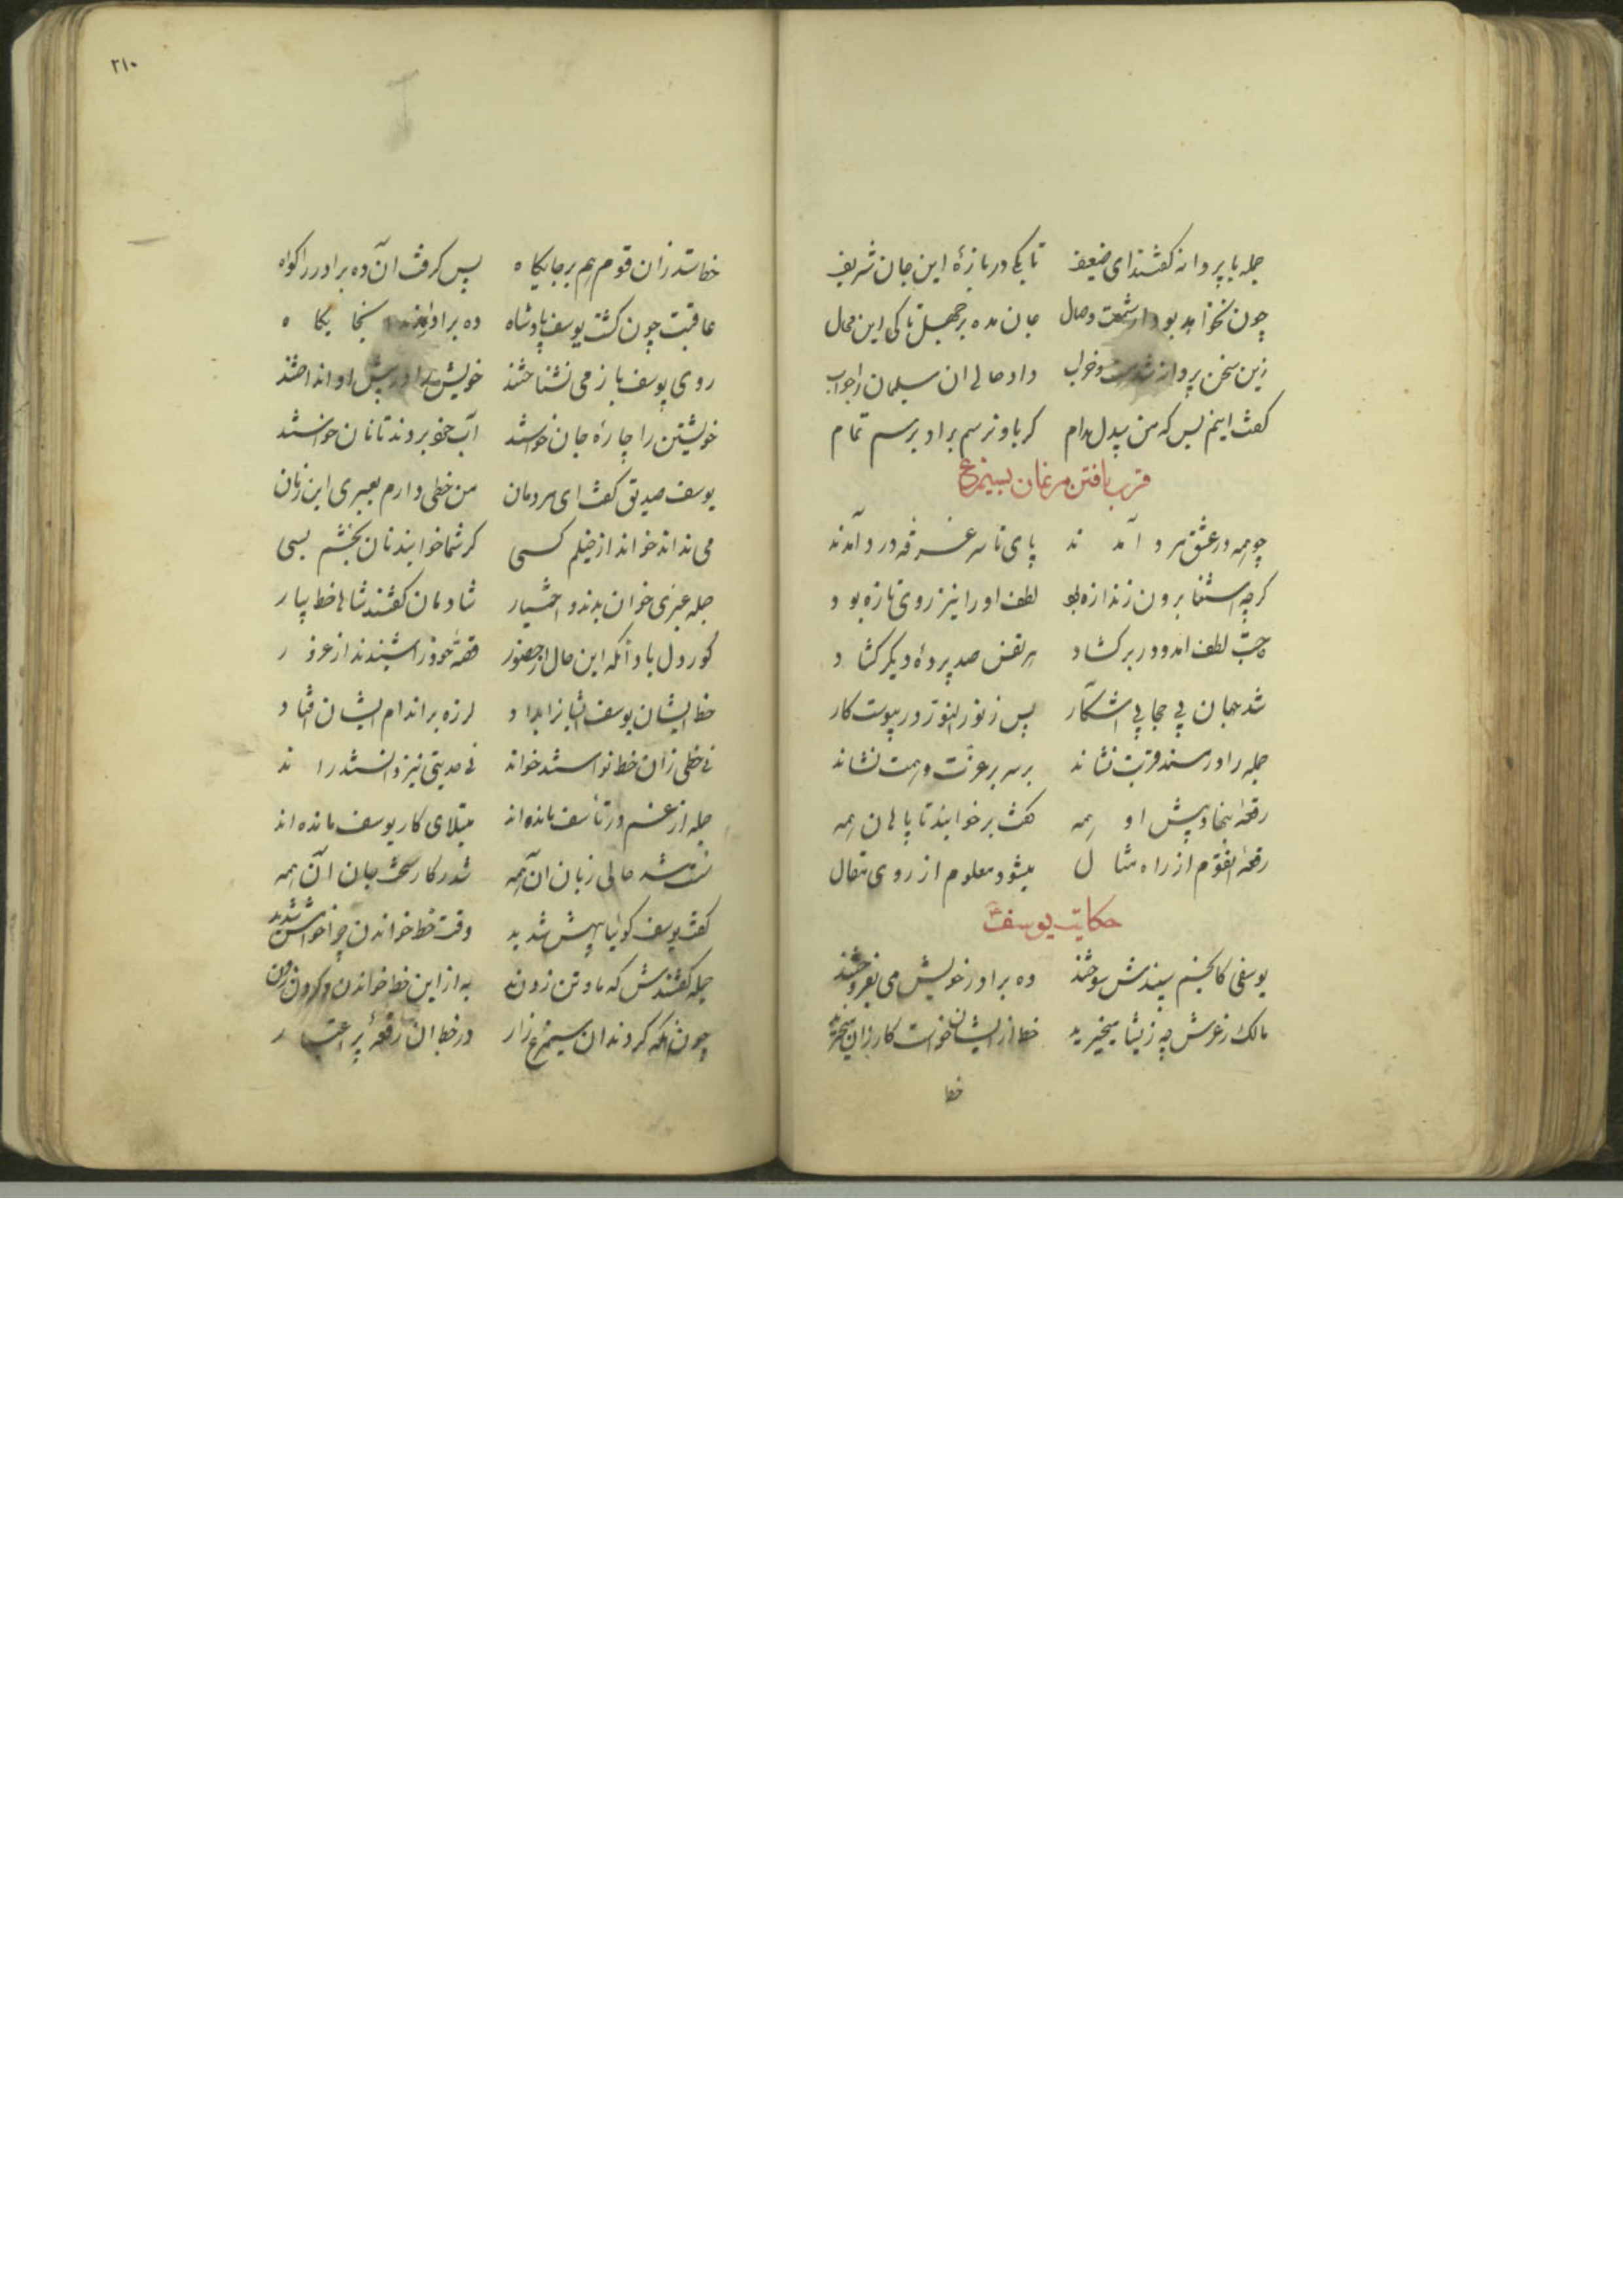 جمله با پروانه گفتند ای ضعیف تا بکی دربازهٔ این جان شریف
چون نخواهد بود از شمعت وصال جان مده بر جهل تا کی این محال
زین سخن پروانه شد مست و خراب داد حالی آن سلیمان را جواب
گفت اینم بس که من بیدل مدام گر باو نرسم برادر برسم تمام
قرب یافتن مرغان بسیمرغ
چو همه در عشق مرد آمدند پای تا سر غرفه درد آمدند
گرچه استغنا برون ز اندازه بود لطف او را نیز روی تازه بود
لطف آمد و در برگشاد هر نفس صد پردهٔ دیگر گشاد
شد جهان بی حجابی آشکار پس ز نور النور در پیوست کار
جمله را در مسند قربت نشاند بر سریر عزت و هیبت نشاند
رقعهٔ بنهاد پیش او همه گفت برخوانید تا پایان همه
رقعهٔ آنقوم از راه مثال میشود معلوم از روی مقال
حکایت یوسف
یوسفی کانجم سپندش سوختند ده برادر خویش می بفروختند
مالک زعرش چه زیشان میخرید خط ازیشان خواست کارزان میخرید
خط
خط ستد زان قوم هم بر جایگاه پس گرفت آن ده برادر را گواه
عاقبت چون گشت یوسف پادشاه ده برادر آمدند آنجایگاه
روی یوسف باز می نشناختند خویش را در پیش او انداختند
خویشتن را چارهٔ جان خواستند آب خود بردند تا نان خواستند
یوسف صدیق گفت ای مردمان من خطی دارم بعبری این زمان
می نداند خواند از خیلم کسی گر شما خوانید نان بخشم بسی
جمله عبری خوان بدند و اختیار شادمان گفتند شاها خط بیار
کوردل باد آنکه این حال از حضور قصهٔ خود را شنیدند از غرور
خط ایشان یوسف ایشانرا بداد لرزه بر اندام ایشان افتاد
نی خطی زان خط توانستند خواند نی حدیثی نیز دانستند راند
جمله از غم در تأسف مانده اند مبتلای کار یوسف مانده اند
سست شد حالی زبان آن همه شد ز کار سخت جان آن همه
گفت یوسف گوئیا بیهش شدید وقت خط خواندن چرا خامش شدید
جمله گفتندش که ما و تن زدن به از این خط خواندن و گردن زدن
چون نگه کردند آن سیمرغ زار در خط آن رقعهٔ پر اعتبار
۲۱۰